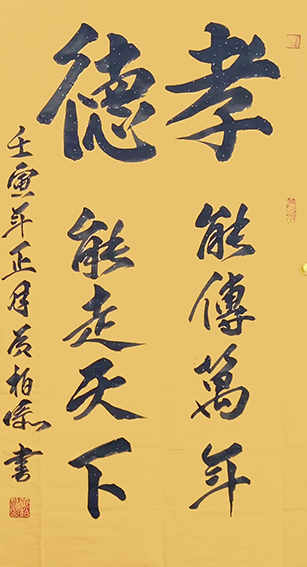 孝能傳萬年
德能走天下
壬寅年正月黃柏儒書